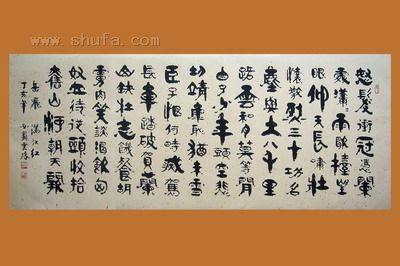 www.shufa.com
怒髮衝冠憑闌
處瀟瀟雨歇擡望
眼仰天長嘯壯
懷激烈三十功名
塵與土八千里
路雲和月莫等閒
白了少年頭空悲
切靖康恥猶未雪
臣子恨何時滅駕
長車踏破賀蘭
山缺壯志飢餐胡
虜肉笑談渴飲匈
奴血待從頭收拾
舊山河朝天闕
岳飛 滿江红
丁亥年